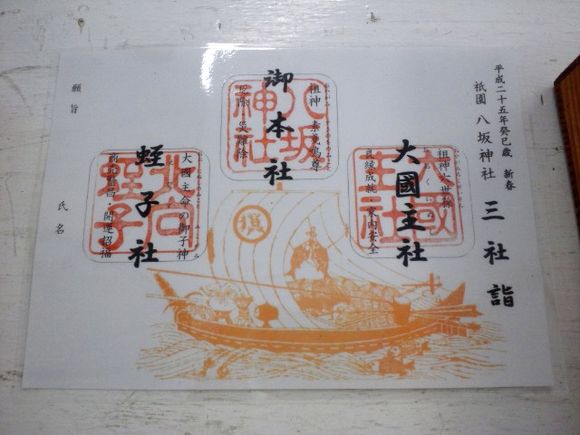 平成二十五年癸巳歳 新春
祇園 八坂神社 三社詣
大國主社
大國主社
良縁成就・家内安全
御本社
八坂神社
祖神 素戔嗚尊
蛭子社
北向蛭子
大國主命の御子神
商売繁昌・開運招福
願旨
氏名